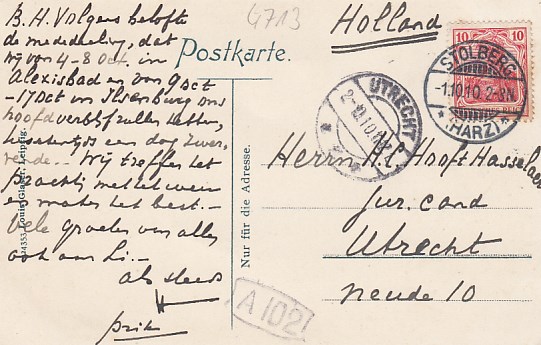 B. H. Volgens belofte
de mededeeling, dat
wij van 4-8 Oct. in
Alexisbad en van 9 Oct
-17 Oct in Ilsenburg ons
hoofdverblijf zullen
een dag
Wij treffen het
prachtig met het weer
en maken het best.-
Vele groeten van allen
ook aan
als steeds
4713
Postkarte.
Holland
10 10
STOLBERG
-1.10.10. 2-8N.
*(HARZ)*
UTRECHT
Herrn H. C. Hooft Hasselaer
Jur. cand
Utrecht
neude 10
Nur für die Adresse.
Louis Glaser, Leipzig.
A 102